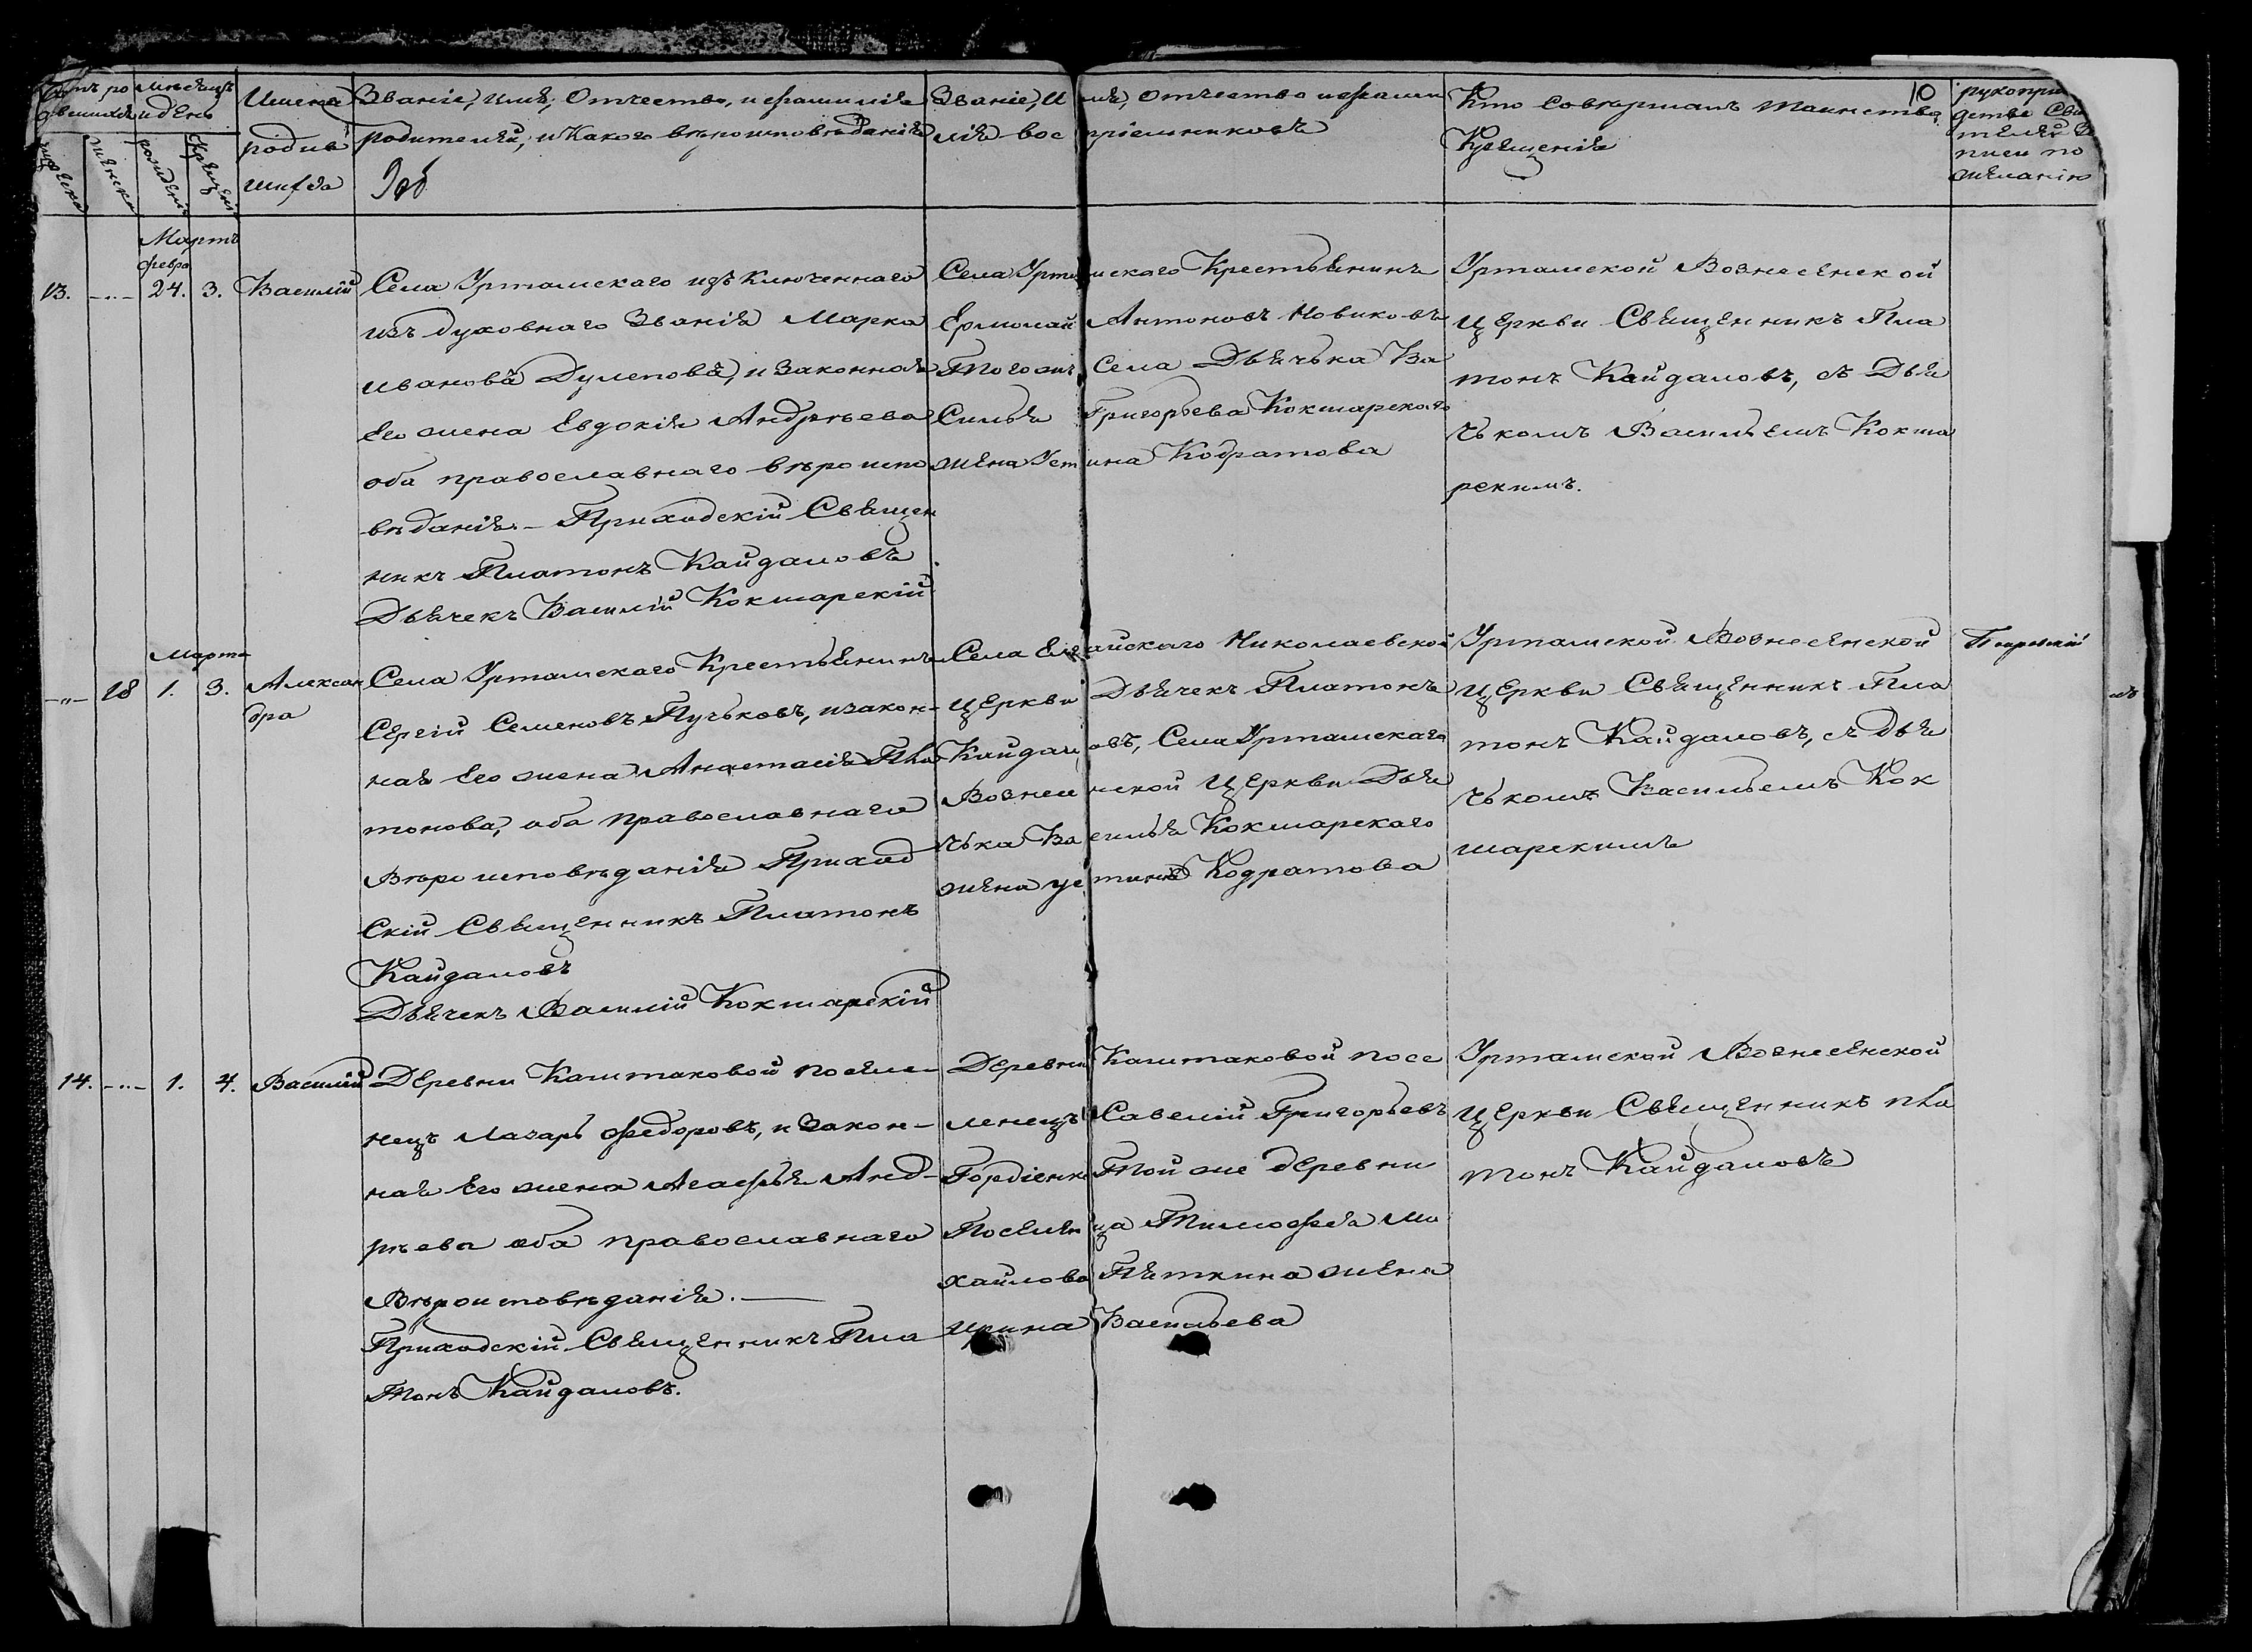 10
мѣсяцъ
и день
Имена
родив
шихся
Званіе, имя, Отчество, и фамилія
родителей, и какого вѣроисповѣданія
Званіе, имя, отчество и фамил
лія воспріемниковъ
Кто Совершалъ таинство
Крещенія
рукопри
детва Сви
писи по
желанію
Мартъ
Февра
13. -„- 24. 3. Василій
Села Уртамскаго изъключеннаго
изъ духовнаго Званія Марка
Иванова Дулепова, и законная
Его жена Евдокія Андрѣева
оба православнаго вѣроиспо
вѣданія. - Приходскій Священ
никъ Платонъ Кайдаловъ
Дьячекъ Василій Кокшарскій
Села Уртамскаго Крестьянинъ
Ермолай Антоновъ Новиковъ
Того жъ Села Дьячька Ва
Силья Григорьева Кокшарскаго
жена Устина Кодратова
Уртамской Вознесенской
Церкви Священникъ Пла
тонъ Кайдаловъ, съ Дья
чькомъ Васильемъ Кокша
рскимъ.
Марта
-„- 18 1. 3. Алексан
дра
Села Уртамскаго Крестьянинъ
Сергій Семеновъ Пучьковъ, изакон-
ная Его жена Анастасія Пла
тонова, оба православнаго
Вѣроисповѣданія Приход
Скій Священникъ Платонъ
Кайдаловъ
Дьячекъ Василій Кокшарскій
Села Елгайскаго Николаевской
Церкви Дьячекъ Платонъ
Кайдаловъ, Села Уртамскаго
Вознесенской Церкви Дья
чька Василья Кокшарскаго
жена устинья Кодратова
Уртамской Вознесенской
Церкви Священникъ Пла
тонъ Кайдаловъ, съ дья
чькомъ Васильемъ Кок
шарскимъ
14. -„- 1. 4. Василій
Деревни Каштаковой поселе-
нецъ Лазарь Федоровъ, и Закон-
ная Его жена Агафья Анд-
рѣева оба православнаго
Вѣроисповѣданія. —
Приходскій Священникъ Пла
тонъ Кайдаловъ.
Деревни Каштаковой посе
ленецъ Савелій Григорьевъ
Гордіенко Той же деревни
Поселенца Тимофея Ми
хайлова Пяткина жена
Ирина Васильева
Уртамской Вознесенской
Церкви Священникъ Пла
тонъ Кайдаловъ